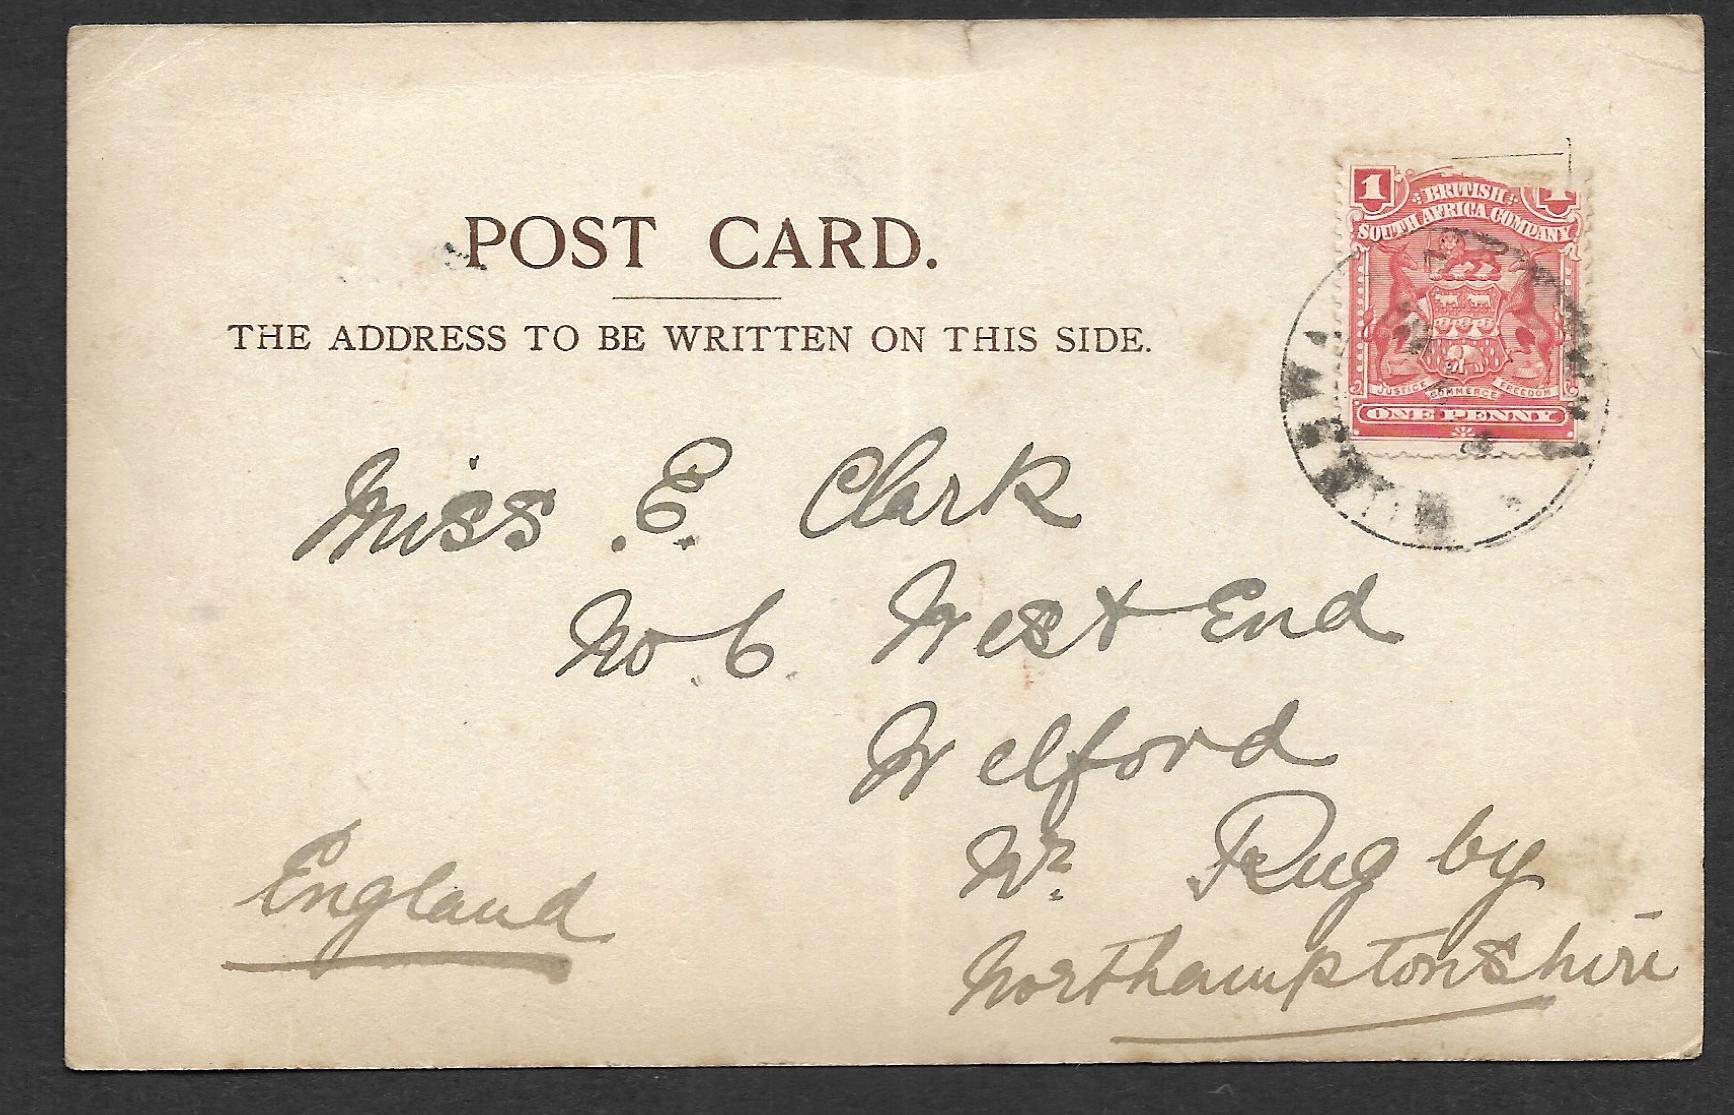 POST CARD.
THE ADDRESS TO BE WRITTEN ON THIS SIDE.
1
BRITISH
SOUTH AFRICA COMPANY
JUSTICE COMMERCE FREEDOM
ONE PENNY
Miss E. Clark
No 6. West End
Welford
Nr. Rugby
Northamptonshire
England